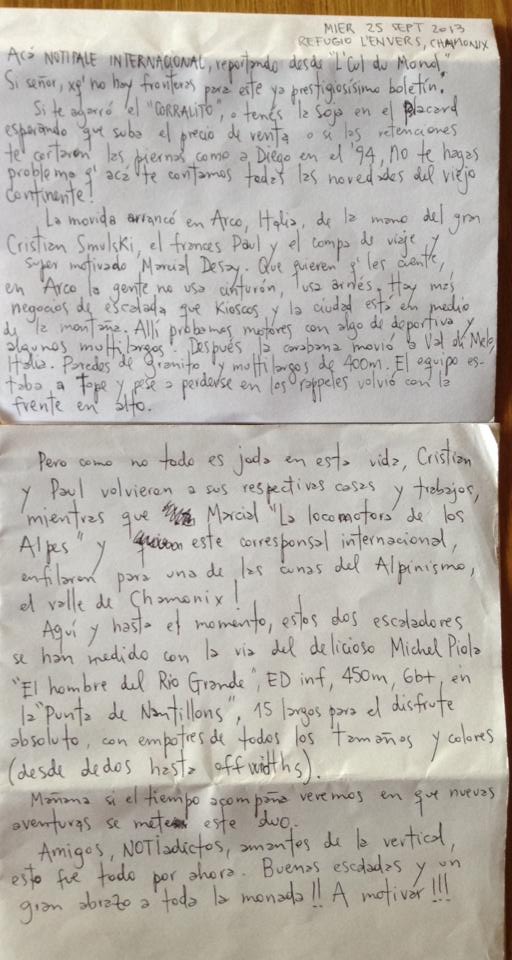 MIER 25 SEPT 2013
REFUGIO L'ENVERS, CHAMONIX
Acá NOTIPALE INTERNACIONAL, reportando desde "L'Cul du Mond".
Si señor, xq' no hay fronteras para este ya prestigiosísimo boletín.
Si te agarró el "CORRALITO", o tenés la soja en el placard
esperando que suba el precio de venta o si las retenciones
te cortaron las piernas como a Diego en el '94, NO te hagas
problema q' acá te contamos todas las novedades del viejo
continente!
La movida arrancó en Arco, Italia, de la mano del gran
Cristian Smulski, el frances Paul y el compa de viaje y
super motivado Marcial Desay. Que quieren q' les cuente,
en Arco la gente no usa cinturón, usa arnés. Hay más
negocios de escalada que Kioscos, y la ciudad está en medio
de la montaña. Allí probamos motores con algo de deportiva y
algunos multilargos. Después la carabana movió a Val di Melo,
Italia. Paredes de granito y multilargos de 400m. El equipo es-
taba a tope y pese a perderse en los rappeles volvió con la
frente en alto.
Pero como no todo es joda en esta vida, Cristian
y Paul volvieron a sus respectivas casas y trabajos,
mientras que Marcial "La locomotora de los
Alpes" y este corresponsal internacional,
enfilaron para una de las cunas del Alpinismo,
el valle de Chamonix!
Aquí y hasta el momento, estos dos escaladores
se han medido con la via del delicioso Michel Piola
"El hombre del Rio Grande", ED inf, 450m, 6b+, en
la "Punta de Nantillons", 15 largos para el disfrute
absoluto, con empotres de todos los tamaños y colores
(desde dedos hasta offwidths).
Mañana si el tiempo acompaña veremos en que nuevas
aventuras se mete este duo.
Amigos, NOTIadictos, amantes de la vertical,
esto fue todo por ahora. Buenas escaladas y un
gran abrazo a toda la monada!! A motivar!!!